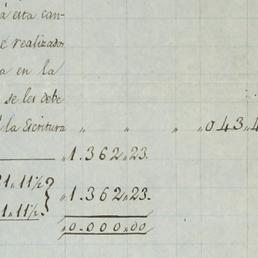 á esta can-
e realizado
a en la
se les debe
la Escritura " " " " 043,4
" 1.362,,23.
21,,11½ } " 1.362,,23.
1,,11½
" 0.000,,00